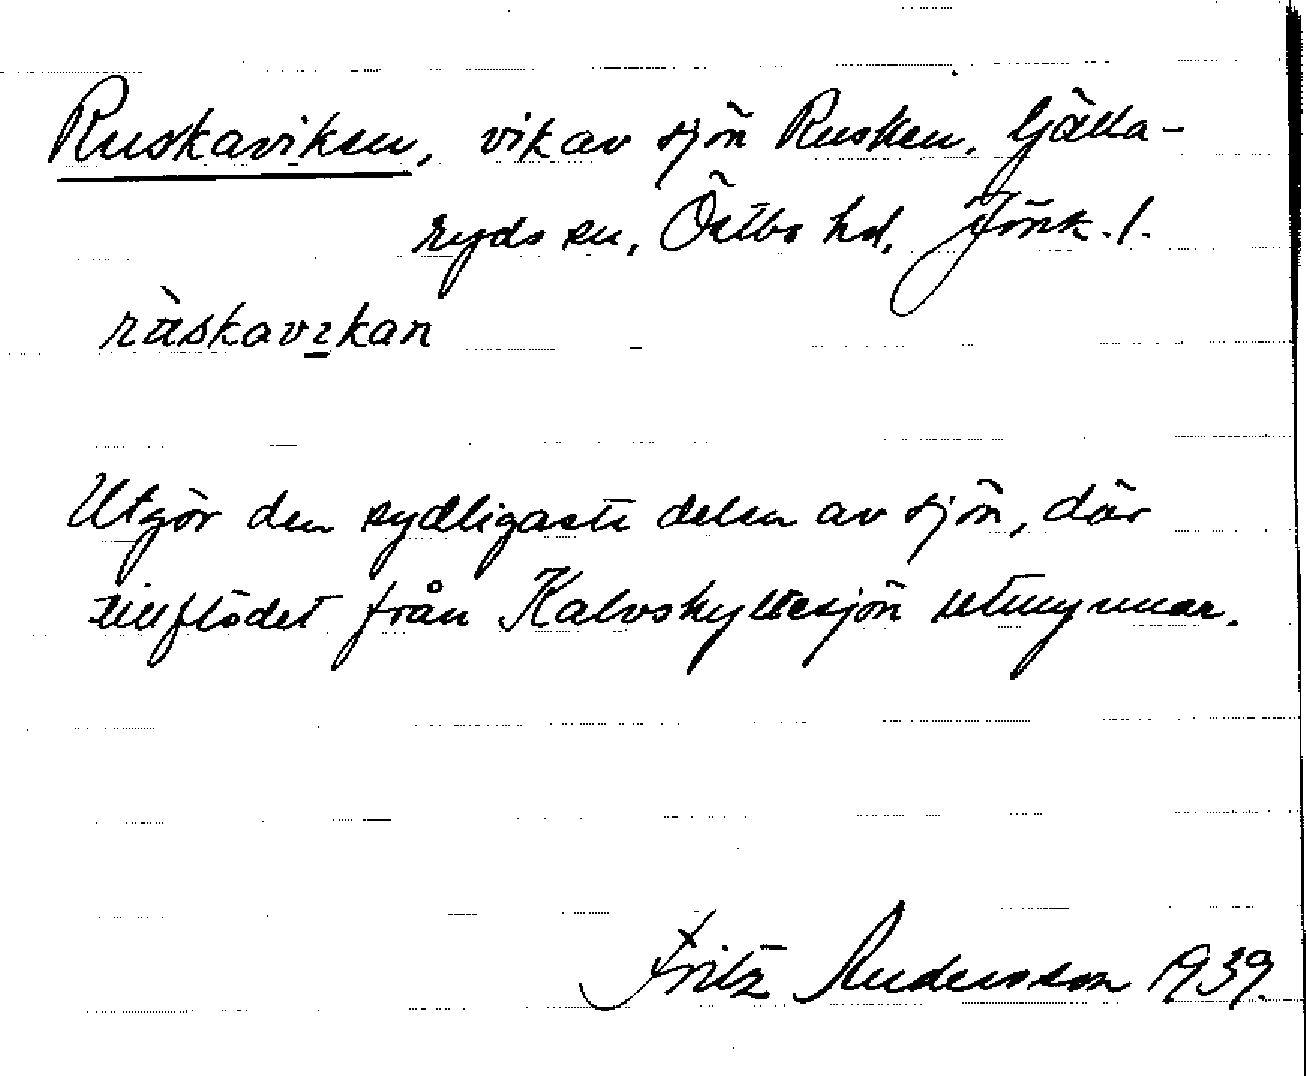 Ruskaviken, vik av sjön Rusken. Gjälla-
ryds sn, Östbo hd, Jönk. l.
rùskavikan
Utgör den sydligaste delen av sjön, där
tillflödet från Kalvskyttesjön utmynnar.
Fritz Andersson 1939.